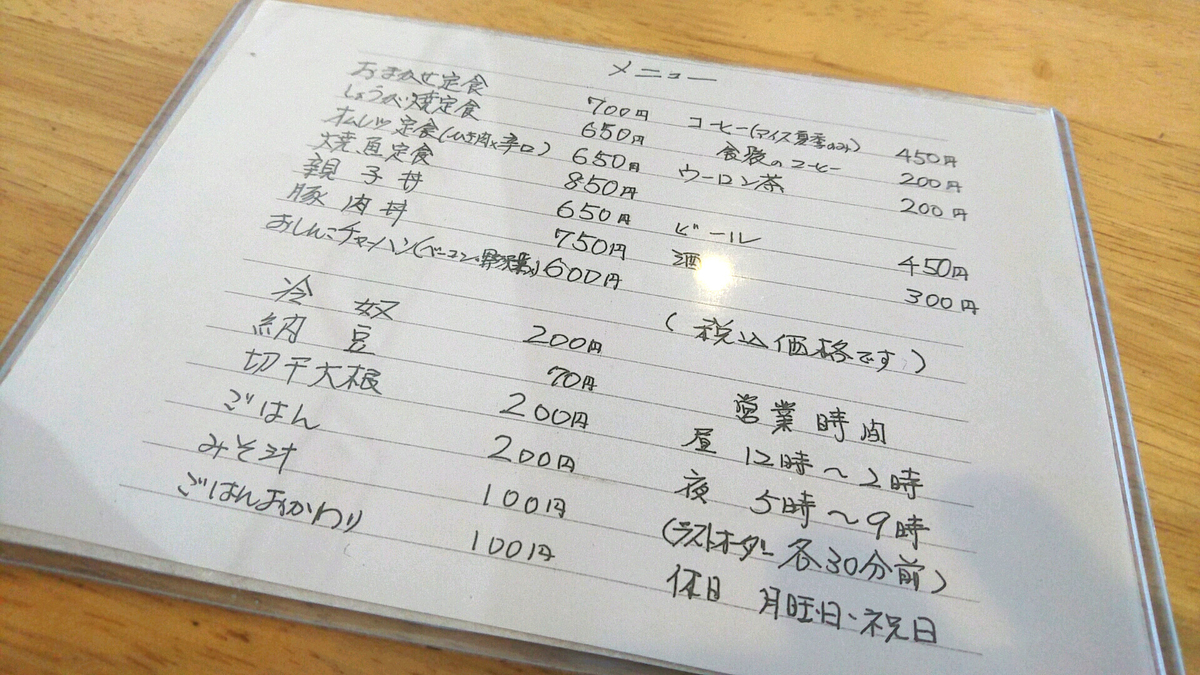 メニュー
おまかせ定食 700円
しょうが焼定食 650円
オムレツ定食(ひき肉×辛口) 650円
焼魚定食 850円
親子丼 650円
豚肉丼 750円
おしんこチャーハン(ベーコン・野菜入) 600円
冷奴 200円
納豆 70円
切干大根 200円
ごはん 200円
みそ汁 100円
ごはんおかわり 100円
コーヒー(アイス夏季のみ) 450円
食後のコーヒー 200円
ウーロン茶 200円
ビール 450円
酒 300円
(税込価格です)
営業時間
昼 12時〜2時
夜 5時〜9時
(ラストオーダー各30分前)
休日 月旺・日・祝日